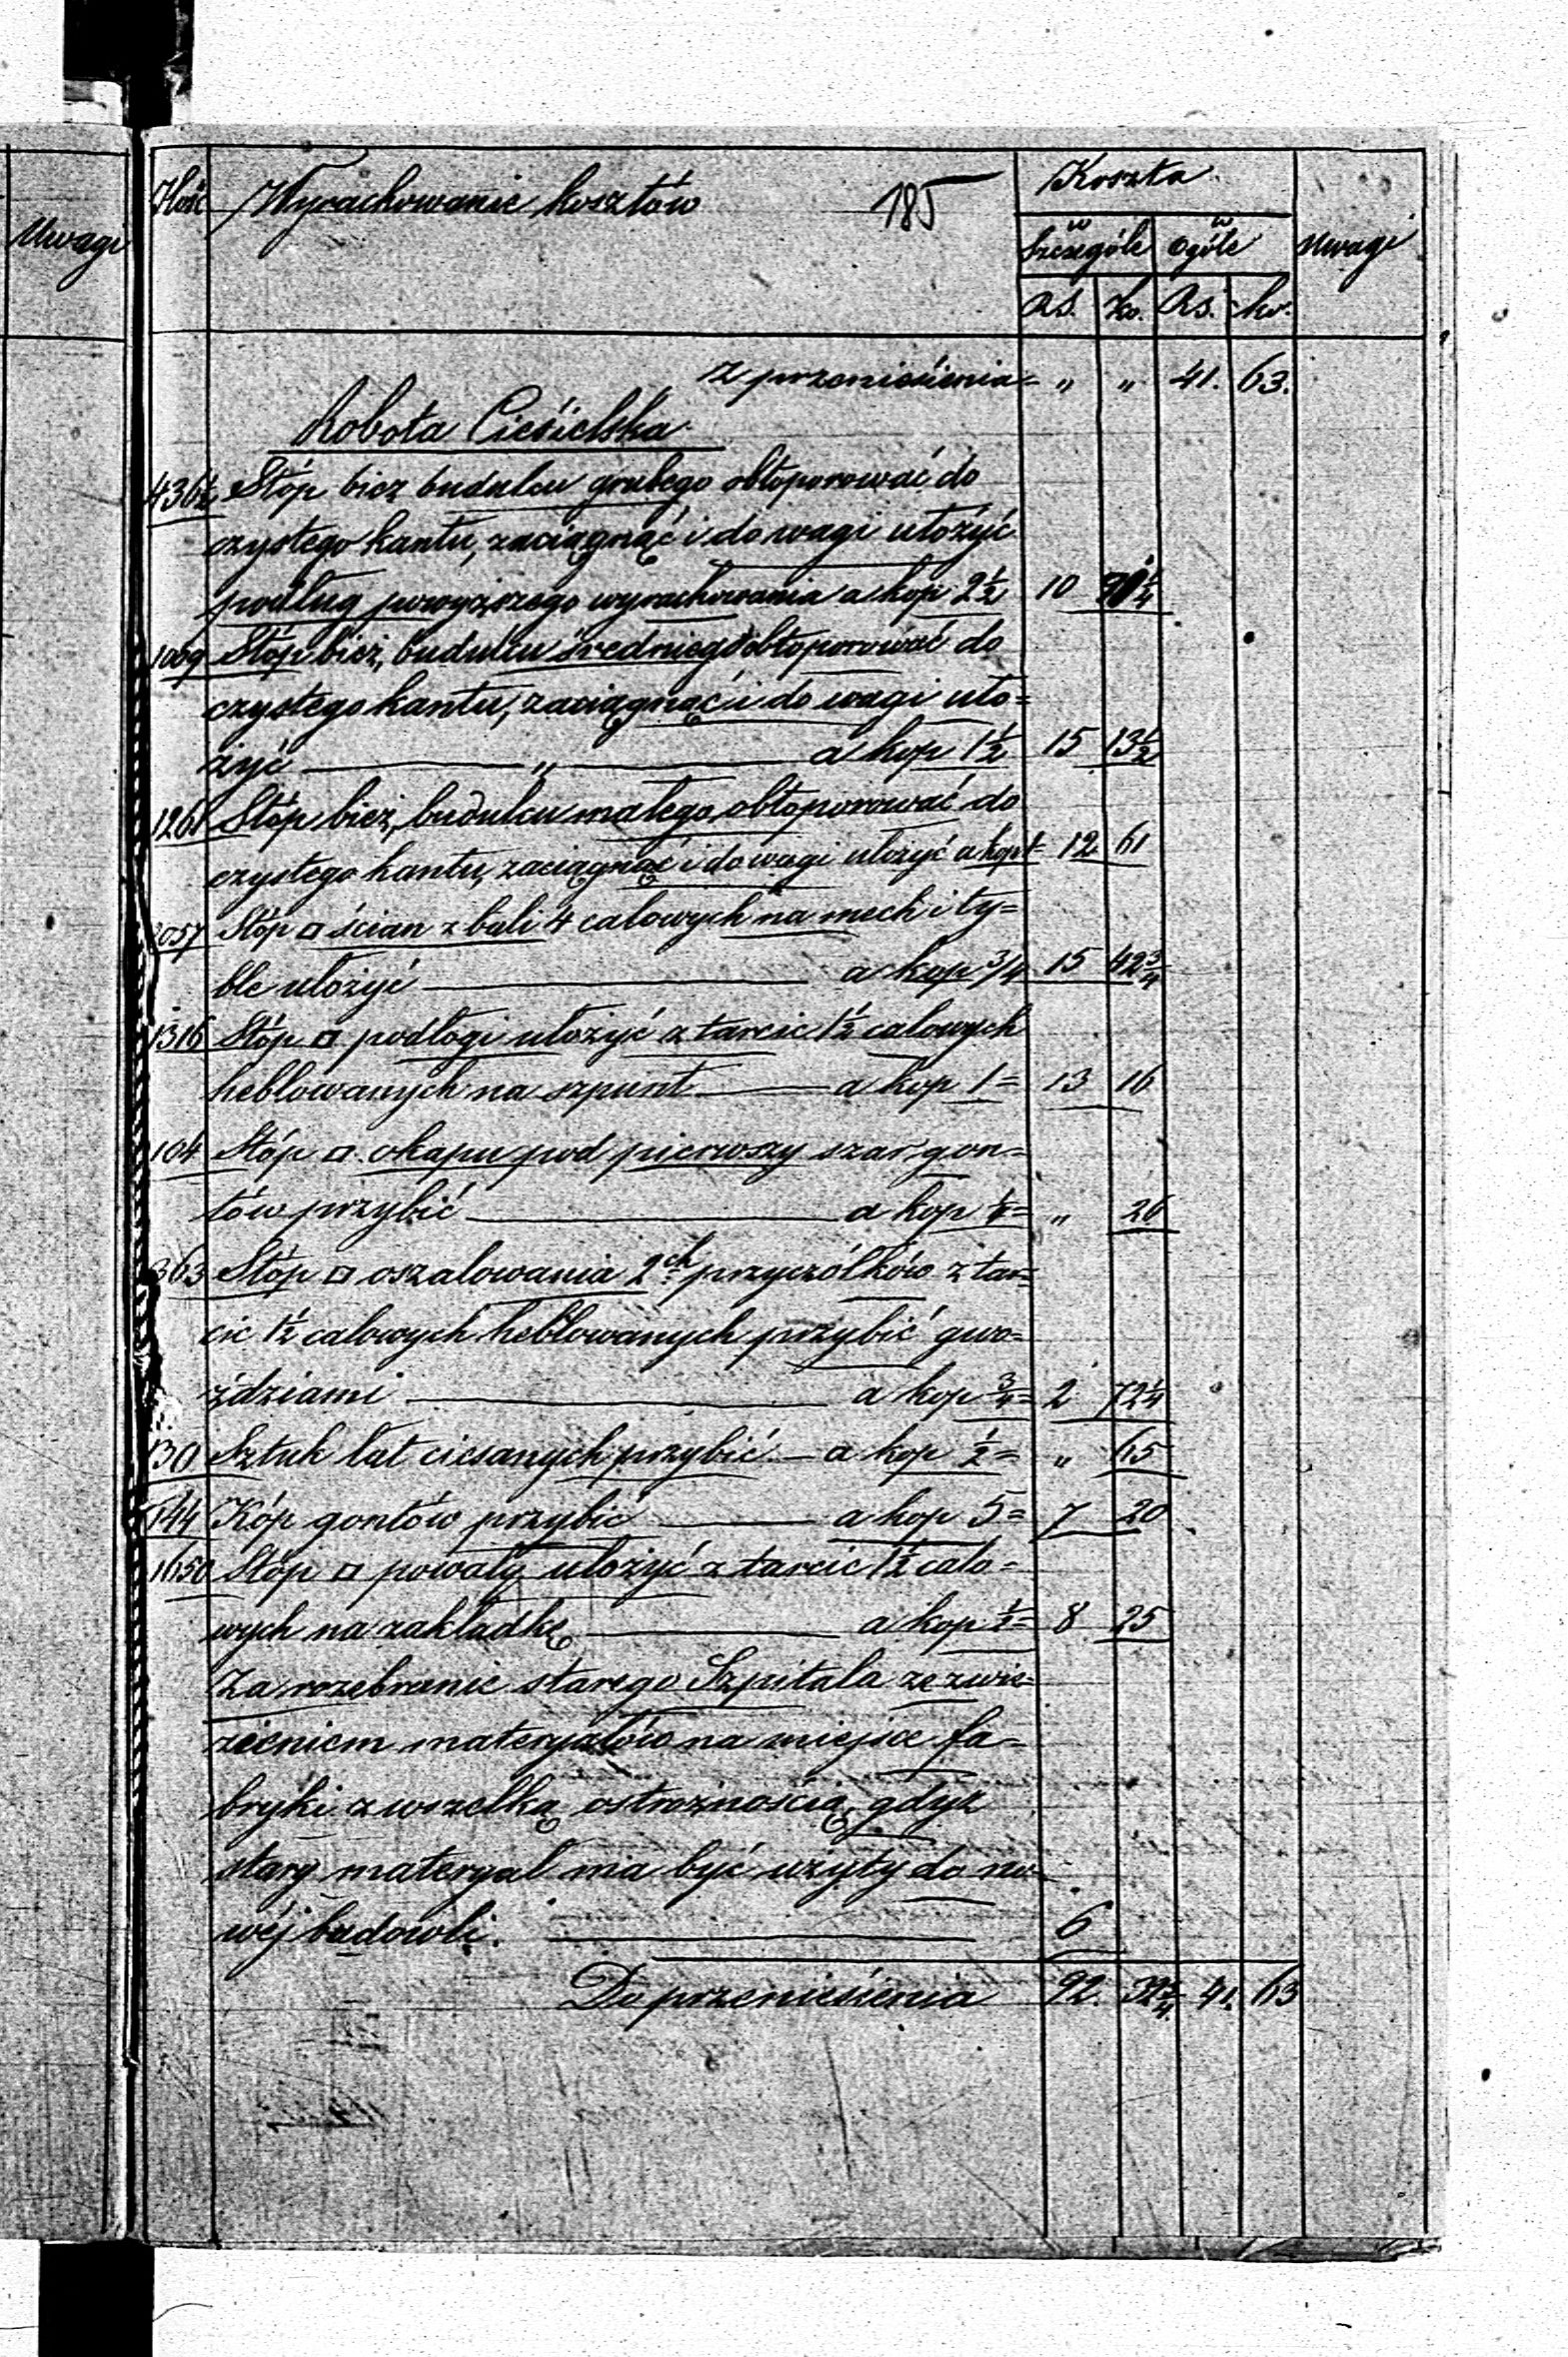 Uwagi
Ilość Wyrachowanie kosztów 185 Koszta Uwagi
w szczególe w ogóle
Rs. ko. Rs. ko.
z przeniesienia = „ „ 41. 63.
Robota Ciesielska
436½ Stóp bież budulcu grubego obtoporować do
czystego kantu, zaciągnąć i do wagi ułożyć
podług powyższego wyrachowania a kop 2½ 10
1009 Stóp bież, budulcu średniego obtoporować do
czystego kantu, zaciągnąć i do wagi uło=
żyć — „ — a kop 1½ 15 13½
1261 Stóp bież, budulcu małego, obtoporować do
czystego kantu, zaciągnąć i do wagi ułożyć a kop 1= 12 61
2057 Stóp □ ścian z bali 4 calowych na mech i ty=
ble ułożyć — a kop ¾ 15 42¾
1316 Stóp □ podłogi ułożyć z tarcic 1½ calowych
heblowanych na szpunt — a kop 1= 13 16
104 Stóp □ okapu pod pierwszy szar, gon=
tów przybić — a kop ¼= „ 26
363 Stóp □ oszalowania 2ch przyczółków z tar=
cic 1½ calowych heblowanych przybić gwo=
ździami — a kop ¾= 2 72¼
130 Sztuk łat ciesanych przybić — a kop ½= „ 65
144 Kóp gontów przybić — a kop 5= 7 20
1650 Stóp □ powały ułożyć z tarcic 1½ calo=
wych na zakładkę — a kop ½= 8 25
Za rozebranie starego Szpitala ze zwie=
zieniem materyałów na miejsce fa=
bryki z wszelką ostrożnością, gdyż
stary materyał ma być użyty do no=
wéj budowli. — 6
Do przeniesienia 92. 32¾ 41. 63